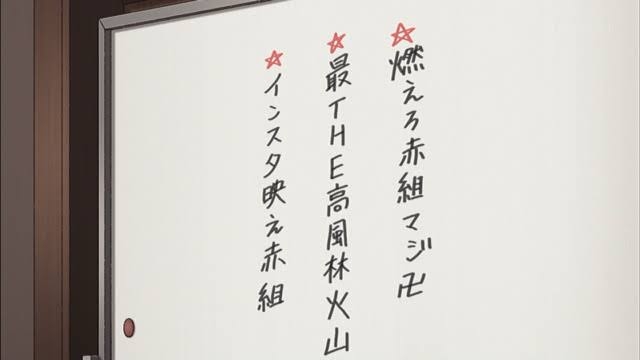 ☆燃えろ赤組マジ卍
☆最THE高風林火山
☆インスタ映え赤組